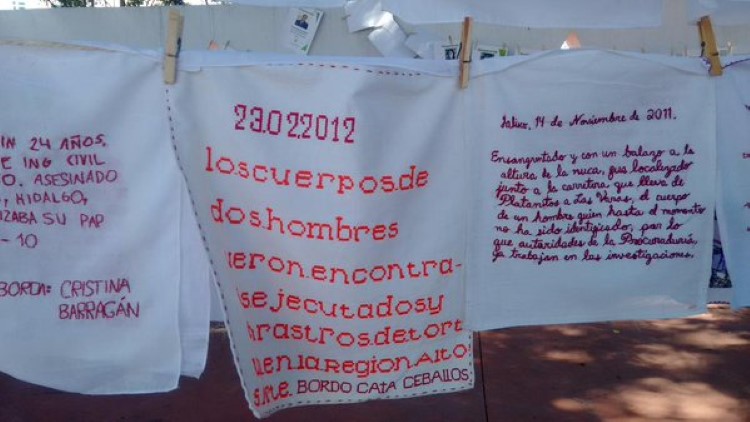 IN 24 AÑOS.
E ING CIVIL
O. ASESINADO
, HIDALGO,
IZABA SU PAP
- 10
BORDA: CRISTINA
BARRAGÁN
23.02.2012
los.cuerpos.de
dos.hombres
ueron.encontra-
s.ejecutados y
rastros.de.tort
en.la.Region.Alto
BORDO CATA CEBALLOS
Jalisco, 14 de Noviembre de 2011.
Ensangrentado y con un balazo a la
altura de la nuca, fue localizado
junto a la carretera que lleva de
Platanitos a Las Varas, el cuerpo
de un hombre quien hasta el momento
no ha sido identificado, por lo
que autoridades de la Procuraduría,
ya trabajan en las investigaciones.